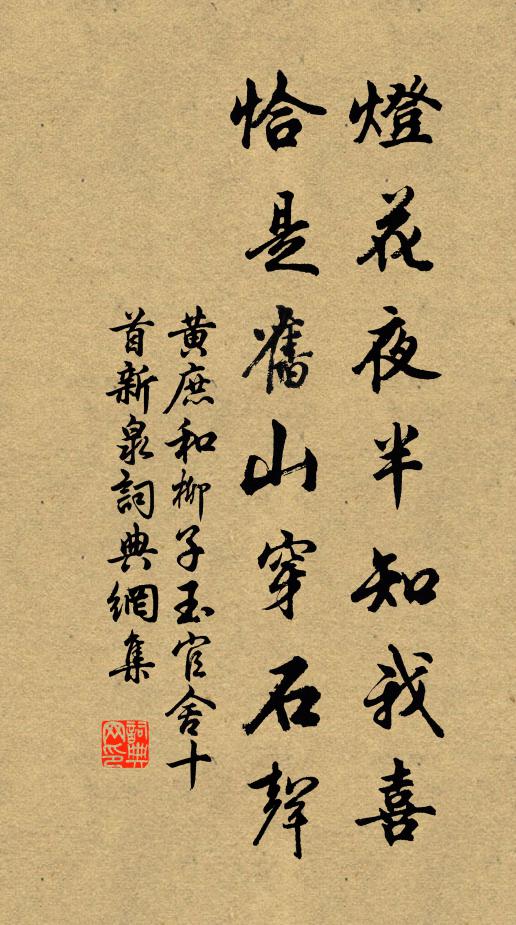 燈花夜半知我喜
恰是舊山穿石聲
黃庶和柳子玉官舍十
首新泉詞典網集
詞典
网印